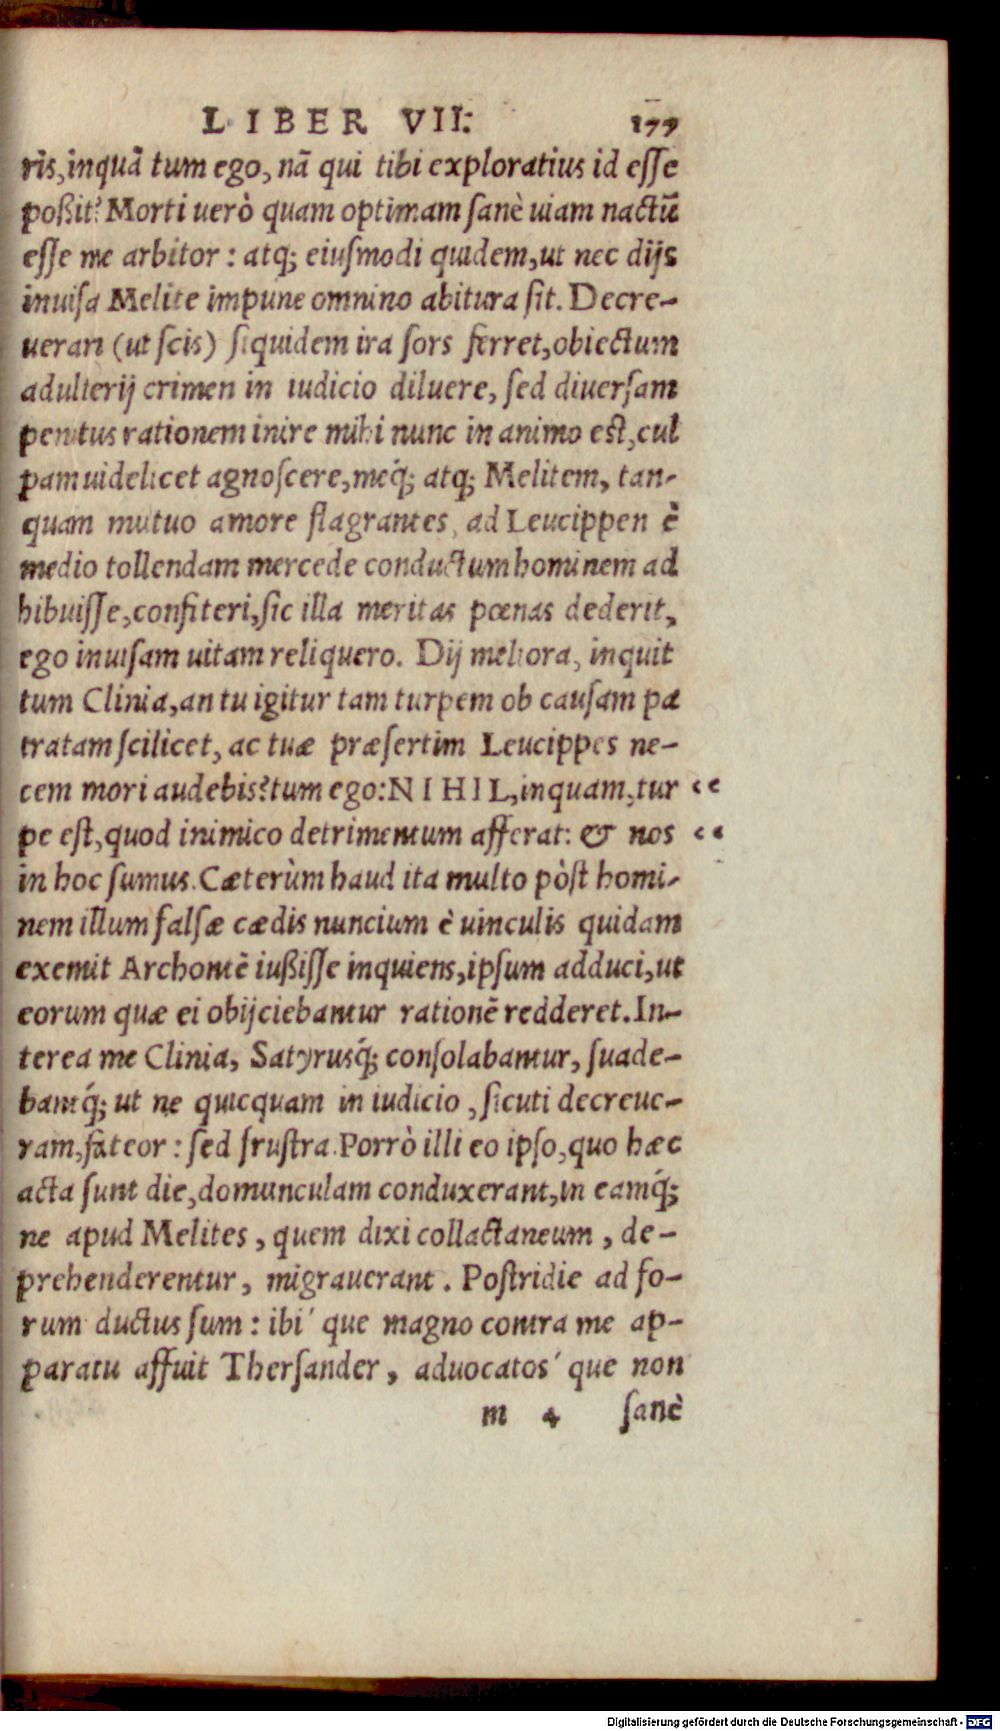 LIBER VII. 177
ris, inquā tum ego, nā qui tibi exploratius id eſſe
poßit? Morti uerò quam optimam ſanè uiam nactū
eſſe me arbitor: atq; eiuſmodi quidem, ut nec dijs
inuiſa Melite impune omnino abitura ſit. Decre-
ueram (ut ſcis) ſiquidem ita ſors ferret, obiectum
adulterij crimen in iudicio diluere, ſed diuerſam
penitus rationem inire mihi nunc in animo eſt, cul
pam uidelicet agnoſcere, meq́; atq; Melitem, tan-
quam mutuo amore flagrantes, ad Leucippen è
medio tollendam mercede conductum hominem ad
hibuiſſe, confiteri, ſic illa meritas pœnas dederit,
ego inuiſam uitam reliquero. Dij meliora, inquit
tum Clinia, an tu igitur tam turpem ob cauſam pa
tratam ſcilicet, ac tuæ præſertim Leucippes ne-
cem mori audebis? tum ego: NIHIL, inquam, tur “
pe eſt, quod inimico detrimentum afferat: & nos “
in hoc ſumus. Cæterùm haud ita multo pòſt homi-
nem illum falſæ cædis nuncium è uinculis quidam
exemit Archontē iußiſſe inquiens, ipſum adduci, ut
eorum quæ ei obijciebantur rationē redderet. In-
terea me Clinia, Satyrusq́; conſolabantur, ſuade-
bantq́; ut ne quicquam in iudicio, ſicuti decreue-
ram, fateor: ſed fruſtra. Porrò illi eo ipſo, quo hæc
acta ſunt die, domunculam conduxerant, in eamq́;
ne apud Melites, quem dixi collactaneum, de-
prehenderentur, migrauerant. Poſtridie ad fo-
rum ductus ſum: ibi´que magno contra me ap-
paratu affuit Therſander, aduocatos´que non
m 4 ſanè
Digitalisierung gefördert durch die Deutsche Forschungsgemeinschaft - DFG